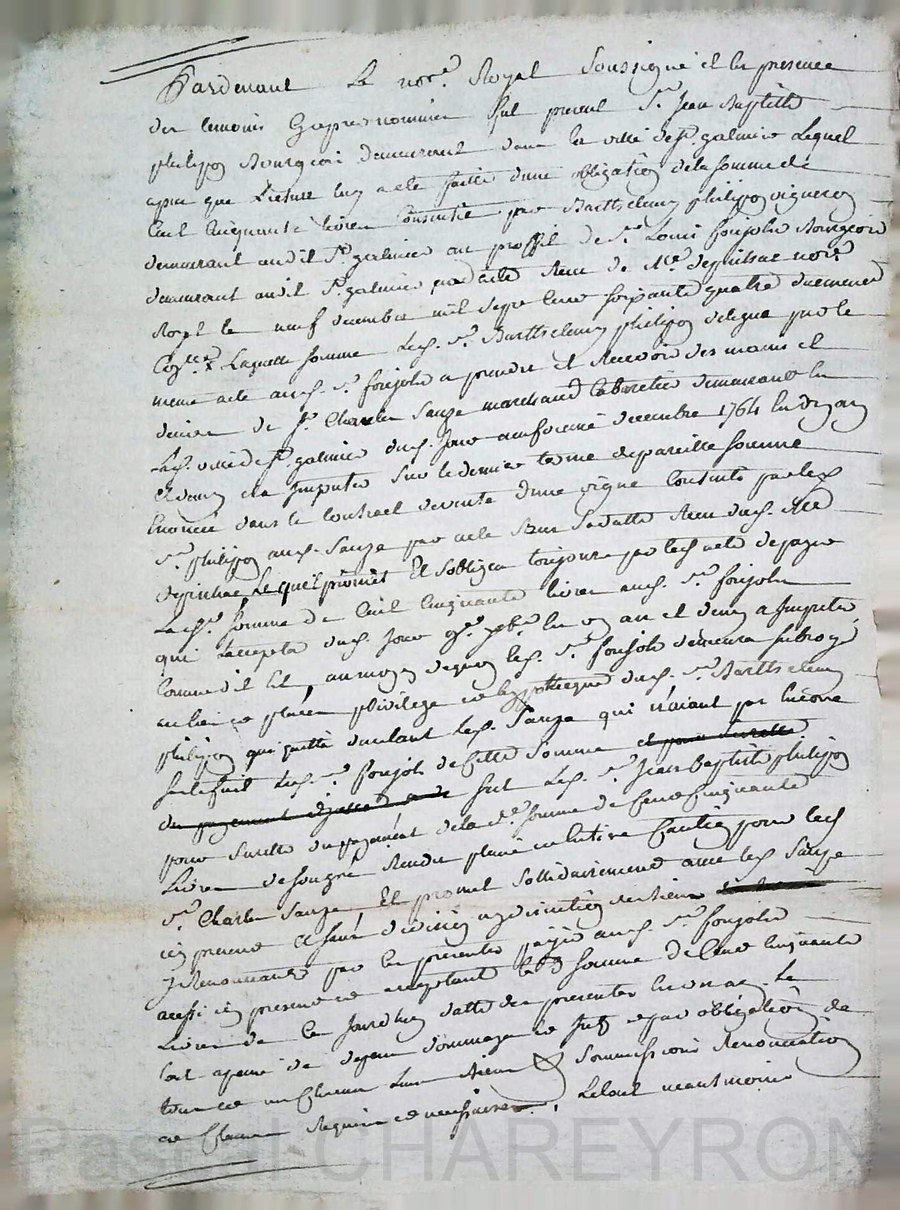 Pardevant Le nore. Royal Soussigné et en presence
des temoins Bas nommés fut present Sr. Jean Baptiste
philipon Bourgeois demeurant dans la ville de st. galmier Lequel
apres que Lecture luy a ete faitte d'une obligation de la somme de
Cent Cinquante livres Consentie par Barthelemy philipon vigneron
demeurant audit St. galmier au proffit de Sr. Louis foujols Bourgeois
demeurant audit St. galmier par acte Recu de Me. depinhac nore.
Royal le neuf decembre mil sept cens soixante quatre
Laquelle somme Led. Sr. Barthelemy philipon delegua par le
meme acte aud. Sr. foujols a prendre et Recevoir des mains et
deniers de Sr. Charles Sauze marchand Cabaretier demeurant en
Lad. ville de St. galmier dud. Jour neufvieme decembre 1764 en un an
et demy et a Imputer Sur le dernier terme de pareille somme
Enoncée dans le Contract de vente d'une vigne Consenti par led.
Sr. philipon aud. Sauze par acte Recu dud. Me
depinhac, Ce qu'il promit Et s'obligea toujours par led. acte de payer
Lad. somme de Cent Cinquante livres aud. Sr. foujols
qui L'accepta dud. Jour 9e. Xbre. en un an et demy a Imputer
Comme dit Est, au moyen de quoy led. Sr. foujols demeura subrogé
au lieu et place privilege et hypotheque dud. Sr. Barthelemy
philipon qui quitta d'autant Led. Sauze qui n'aiant pas Encore
satisfait Led. Sr. foujols de Cette Somme et pour suretté
du payement Led. Sr. Jean Baptiste philipon
pour suretté du payement de la de. somme de Cent Cinquante
Livres de son gré Rendu pleine Caution pour led.
Sr. Charles Sauze, Et promet Solidairement avec led. Sauze
icy present Et sans division ny discution
y Renonceants par Ces presentes payer aud. Sr. foujols
aussi icy present et acceptant lad. somme de Cent Cinquante
Livres de Ce Jourdhuy datte des presentes en un an. Le
tout a peine de depens dommages et par obligation de
tous et un Chacun Leurs biens Soummissions Renonciations
et Clauses Requises et necessaires, Le tout neantmoins
Pascal CHAREYRON